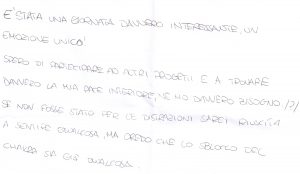 E' STATA UNA GIORNATA DAVVERO INTERESSANTE, UN
EMOZIONE UNICA
SPERO DI PARTECIPARE AD ALTRI PROGETTI E A TROVARE
DAVVERO LA MIA PACE INTERIORE, NE HO DAVVERO BISOGNO
SE NON FOSSE STATO PER LE DISTRAZIONI SAREI RIUSCITA
A SENTIRE QUALCOSA, MA CREDO CHE LO SBLOCCO DEL
CHAKRA SIA GIÀ QUALCOSA.